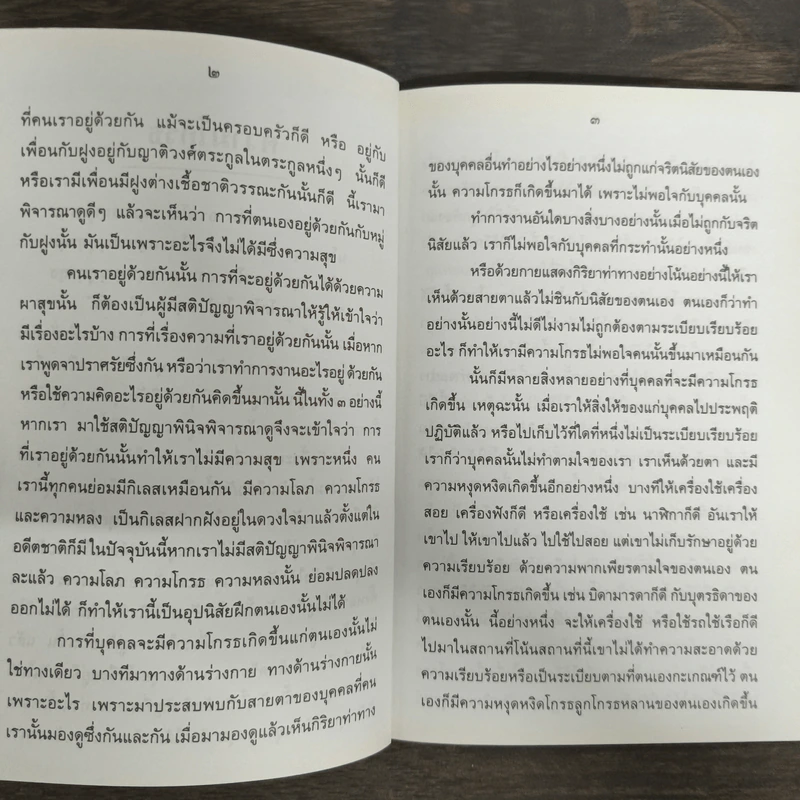 ๒
ที่คนเราอยู่ด้วยกัน แม้จะเป็นครอบครัวก็ดี หรือ อยู่กับ
เพื่อนกับฝูงอยู่กับญาติวงศ์ตระกูลในตระกูลหนึ่งๆ นั้นก็ดี
หรือเรามีเพื่อนมีฝูงต่างเชื้อชาติวรรณะกันนั้นก็ดี นี้เรามา
พิจารณาดูดีๆ แล้วจะเห็นว่า การที่ตนเองอยู่ด้วยกันกับหมู่
กับฝูงนั้น มันเป็นเพราะอะไรจึงไม่ได้มีซึ่งความสุข
คนเราอยู่ด้วยกันนั้น การที่จะอยู่ด้วยกันได้ด้วยความ
ผาสุขนั้น ก็ต้องเป็นผู้มีสติปัญญาพิจารณาให้รู้ให้เข้าใจว่า
มีเรื่องอะไรบ้าง การที่เรื่องความที่เราอยู่ด้วยกันนั้น เมื่อหาก
เราพูดจาปราศรัยซึ่งกัน หรือว่าเราทำการงานอะไรอยู่ ด้วยกัน
หรือใช้ความคิดอะไรอยู่ด้วยกันคิดขึ้นมานั้น นี้ในทั้ง ๓ อย่างนี้
หากเรา มาใช้สติปัญญาพินิจพิจารณาดูจึงจะเข้าใจว่า การ
ที่เราอยู่ด้วยกันนั้นทำให้เราไม่มีความสุข เพราะหนึ่ง คน
เรานี้ทุกคนย่อมมีกิเลสเหมือนกัน มีความโลภ ความโกรธ
และความหลง เป็นกิเลสฝากฝังอยู่ในดวงใจมาแล้วตั้งแต่ใน
อดีตชาติก็มีในปัจจุบันนี้หากเราไม่มีสติปัญญาพินิจพิจารณา
ละแล้ว ความโลภ ความโกรธ ความหลงนั้น ย่อมปลดปลง
ออกไม่ได้ ก็ทำให้เรานี้เป็นอุปนิสัยฝึกตนเองนั้นไม่ได้
การที่บุคคลจะมีความโกรธเกิดขึ้นแก่ตนเองนั้นไม่
ใช่ทางเดียว บางทีมาทางด้านร่างกาย ทางด้านร่างกายนั้น
เพราะอะไร เพราะมาประสบพบกับสายตาของบุคคลที่คน
เรานั้นมองดูซึ่งกันและกัน เมื่อมามองดูแล้วเห็นกิริยาท่าทาง
๓
ของบุคคลอื่นทำอย่างไรอย่างหนึ่งไม่ถูกแก่จริตนิสัยของตนเอง
นั้น ความโกรธก็เกิดขึ้นมาได้ เพราะไม่พอใจกับบุคคลนั้น
ทำการงานอันใดบางสิ่งบางอย่างนั้นเมื่อไม่ถูกกับจริต
นิสัยแล้ว เราก็ไม่พอใจกับบุคคลที่กระทำนั้นอย่างหนึ่ง
หรือด้วยกายแสดงกิริยาท่าทางอย่างโน้นอย่างนี้ให้เรา
เห็นด้วยสายตาแล้วไม่ชินกับนิสัยของตนเอง ตนเองก็ว่าทำ
อย่างนั้นอย่างนี้ไม่ดีไม่งามไม่ถูกต้องตามระเบียบเรียบร้อย
อะไร ก็ทำให้เรามีความโกรธไม่พอใจคนนั้นขึ้นมาเหมือนกัน
นั้นก็มีหลายสิ่งหลายอย่างที่บุคคลที่จะมีความโกรธ
เกิดขึ้น เหตุฉะนั้น เมื่อเราให้สิ่งให้ของแก่บุคคลไปประพฤติ
ปฏิบัติแล้ว หรือไปเก็บไว้ที่ใดที่หนึ่งไม่เป็นระเบียบเรียบร้อย
เราก็ว่าบุคคลนั้นไม่ทำตามใจของเรา เราเห็นด้วยตา และมี
ความหงุดหงิดเกิดขึ้นอีกอย่างหนึ่ง บางทีให้เครื่องใช้เครื่อง
สอย เครื่องฟังก็ดี หรือเครื่องใช้ เช่น นาฬิกาก็ดี อันเราให้
เขาไป ให้เขาไปแล้ว ไปใช้ไปสอย แต่เขาไม่เก็บรักษาอยู่ด้วย
ความเรียบร้อย ด้วยความพากเพียรตามใจของตนเอง ตน
เองก็มีความโกรธเกิดขึ้น เช่น บิดามารดาก็ดี กับบุตรธิดาของ
ตนเองนั้น นี้อย่างหนึ่ง จะให้เครื่องใช้ หรือใช้รถใช้เรือก็ดี
ไปมาในสถานที่โน้นสถานที่นี้เขาไม่ได้ทำความสะอาดด้วย
ความเรียบร้อยหรือเป็นระเบียบตามที่ตนเองกะเกณฑ์ไว้ ตน
เองก็มีความหงุดหงิดโกรธลูกโกรธหลานของตนเองเกิดขึ้น